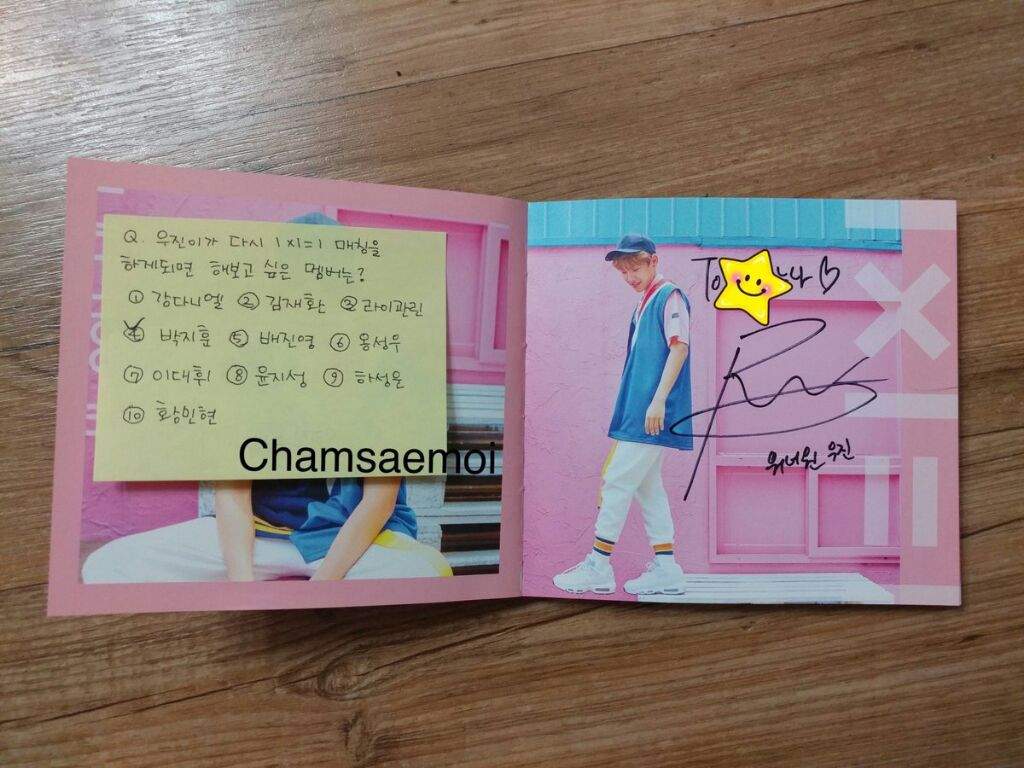 Q. 우진이가 다시 1X1=1 매칭을
하게되면 해보고 싶은 멤버는?
① 강다니엘 ② 김재환 ③ 라이관린
④ 박지훈 ⑤ 배진영 ⑥ 옹성우
⑦ 이대휘 ⑧ 윤지성 ⑨ 하성운
⑩ 황민현
Chamsaemoi
To 나 ♡
워너원 우진